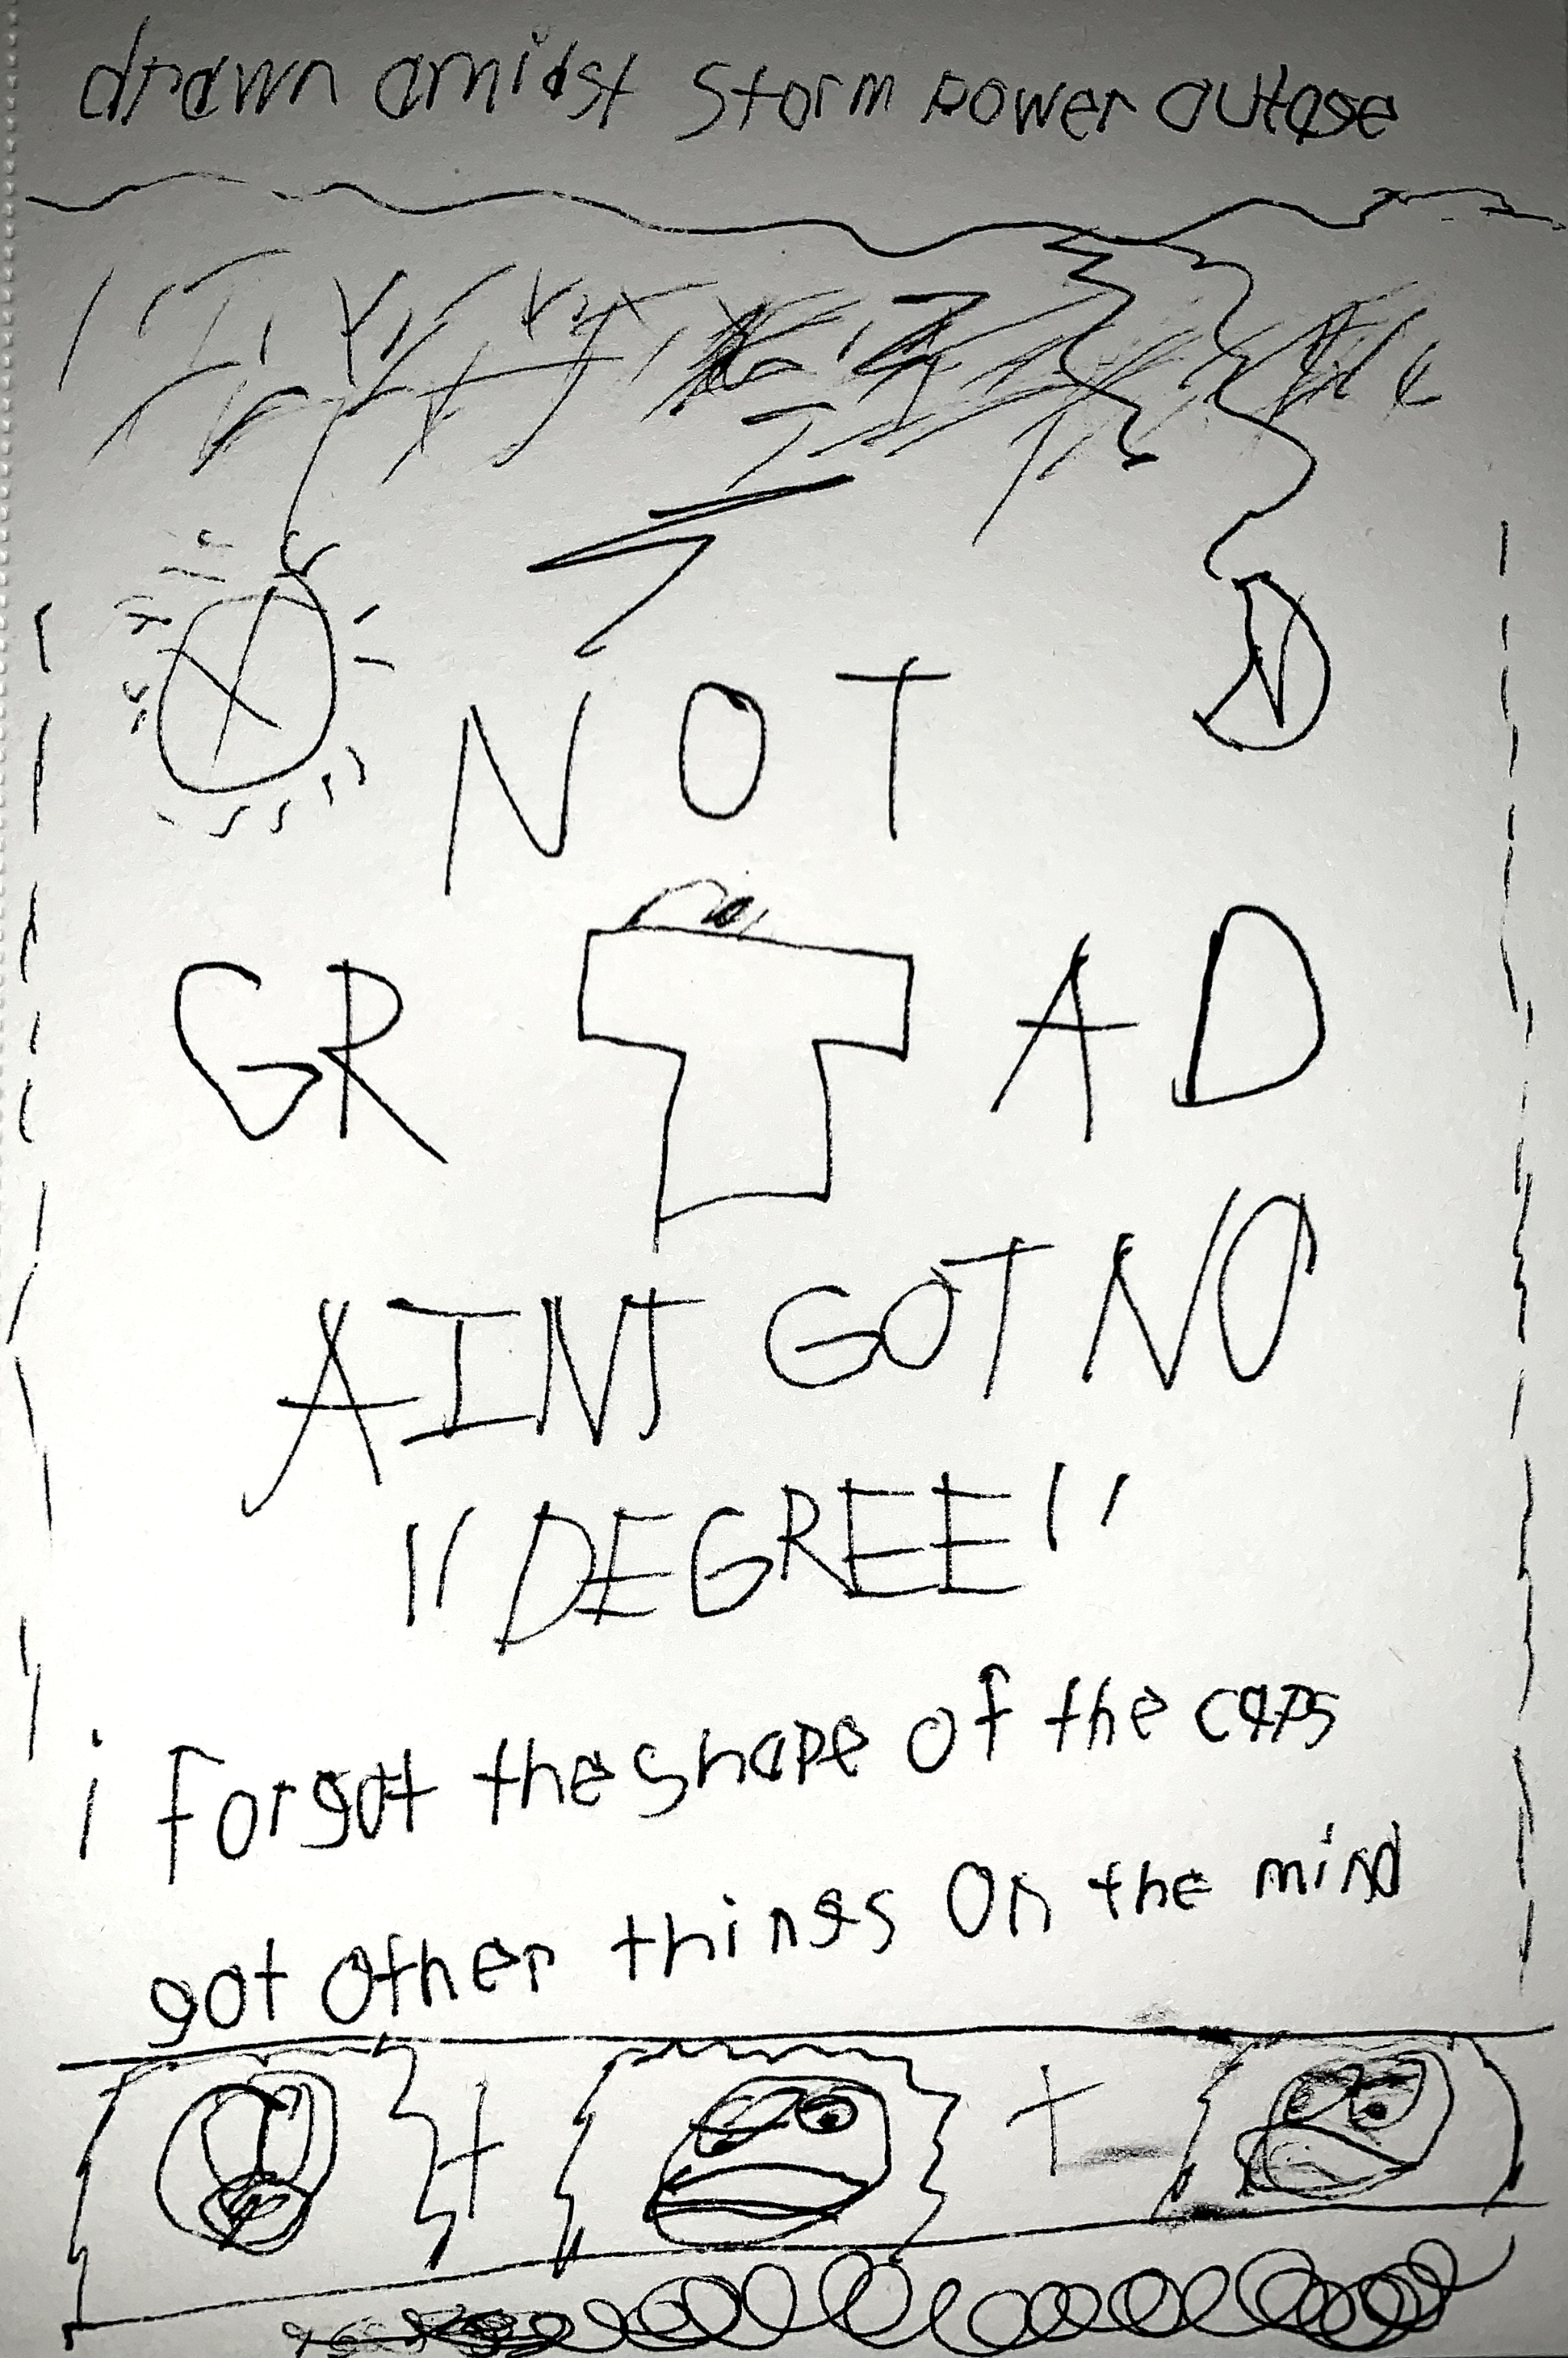 drawn amidst storm power outage
NOT
GR AD
AINT GOT NO
"DEGREE"
i forgot the shape of the caps
got other things on the mind